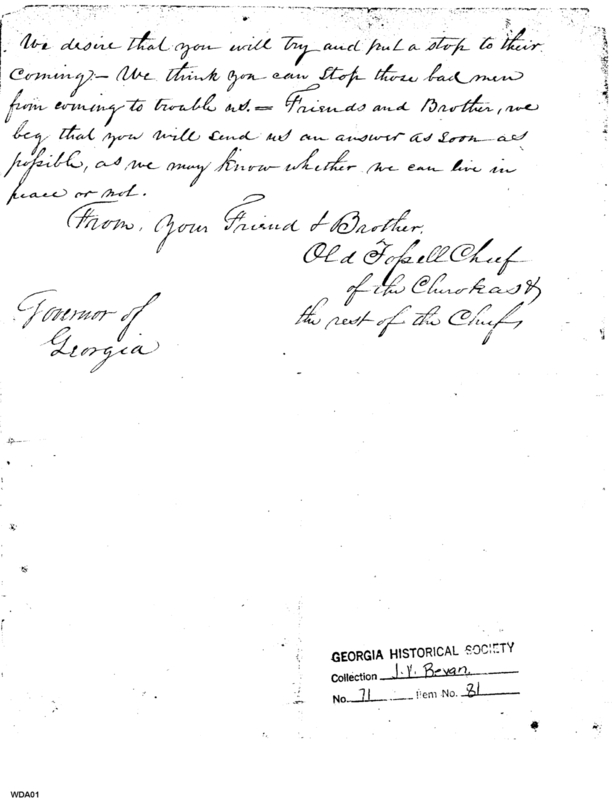 We desire that you will try and put a stop to their
coming:- We think you can stop those bad men
from coming to trouble us. = Friends and Brother, we
beg that you will send us an answer as soon as
possible, as we may know whether we can live in
peace or not.
From, your Friend & Brother,
Old Tossell Chief
of the Cherokas &
the rest of the Chiefs
Governor of
Georgia
GEORGIA HISTORICAL SOCIETY
Collection J.V. Bevan
No. 71 Item No. 81
WDA01